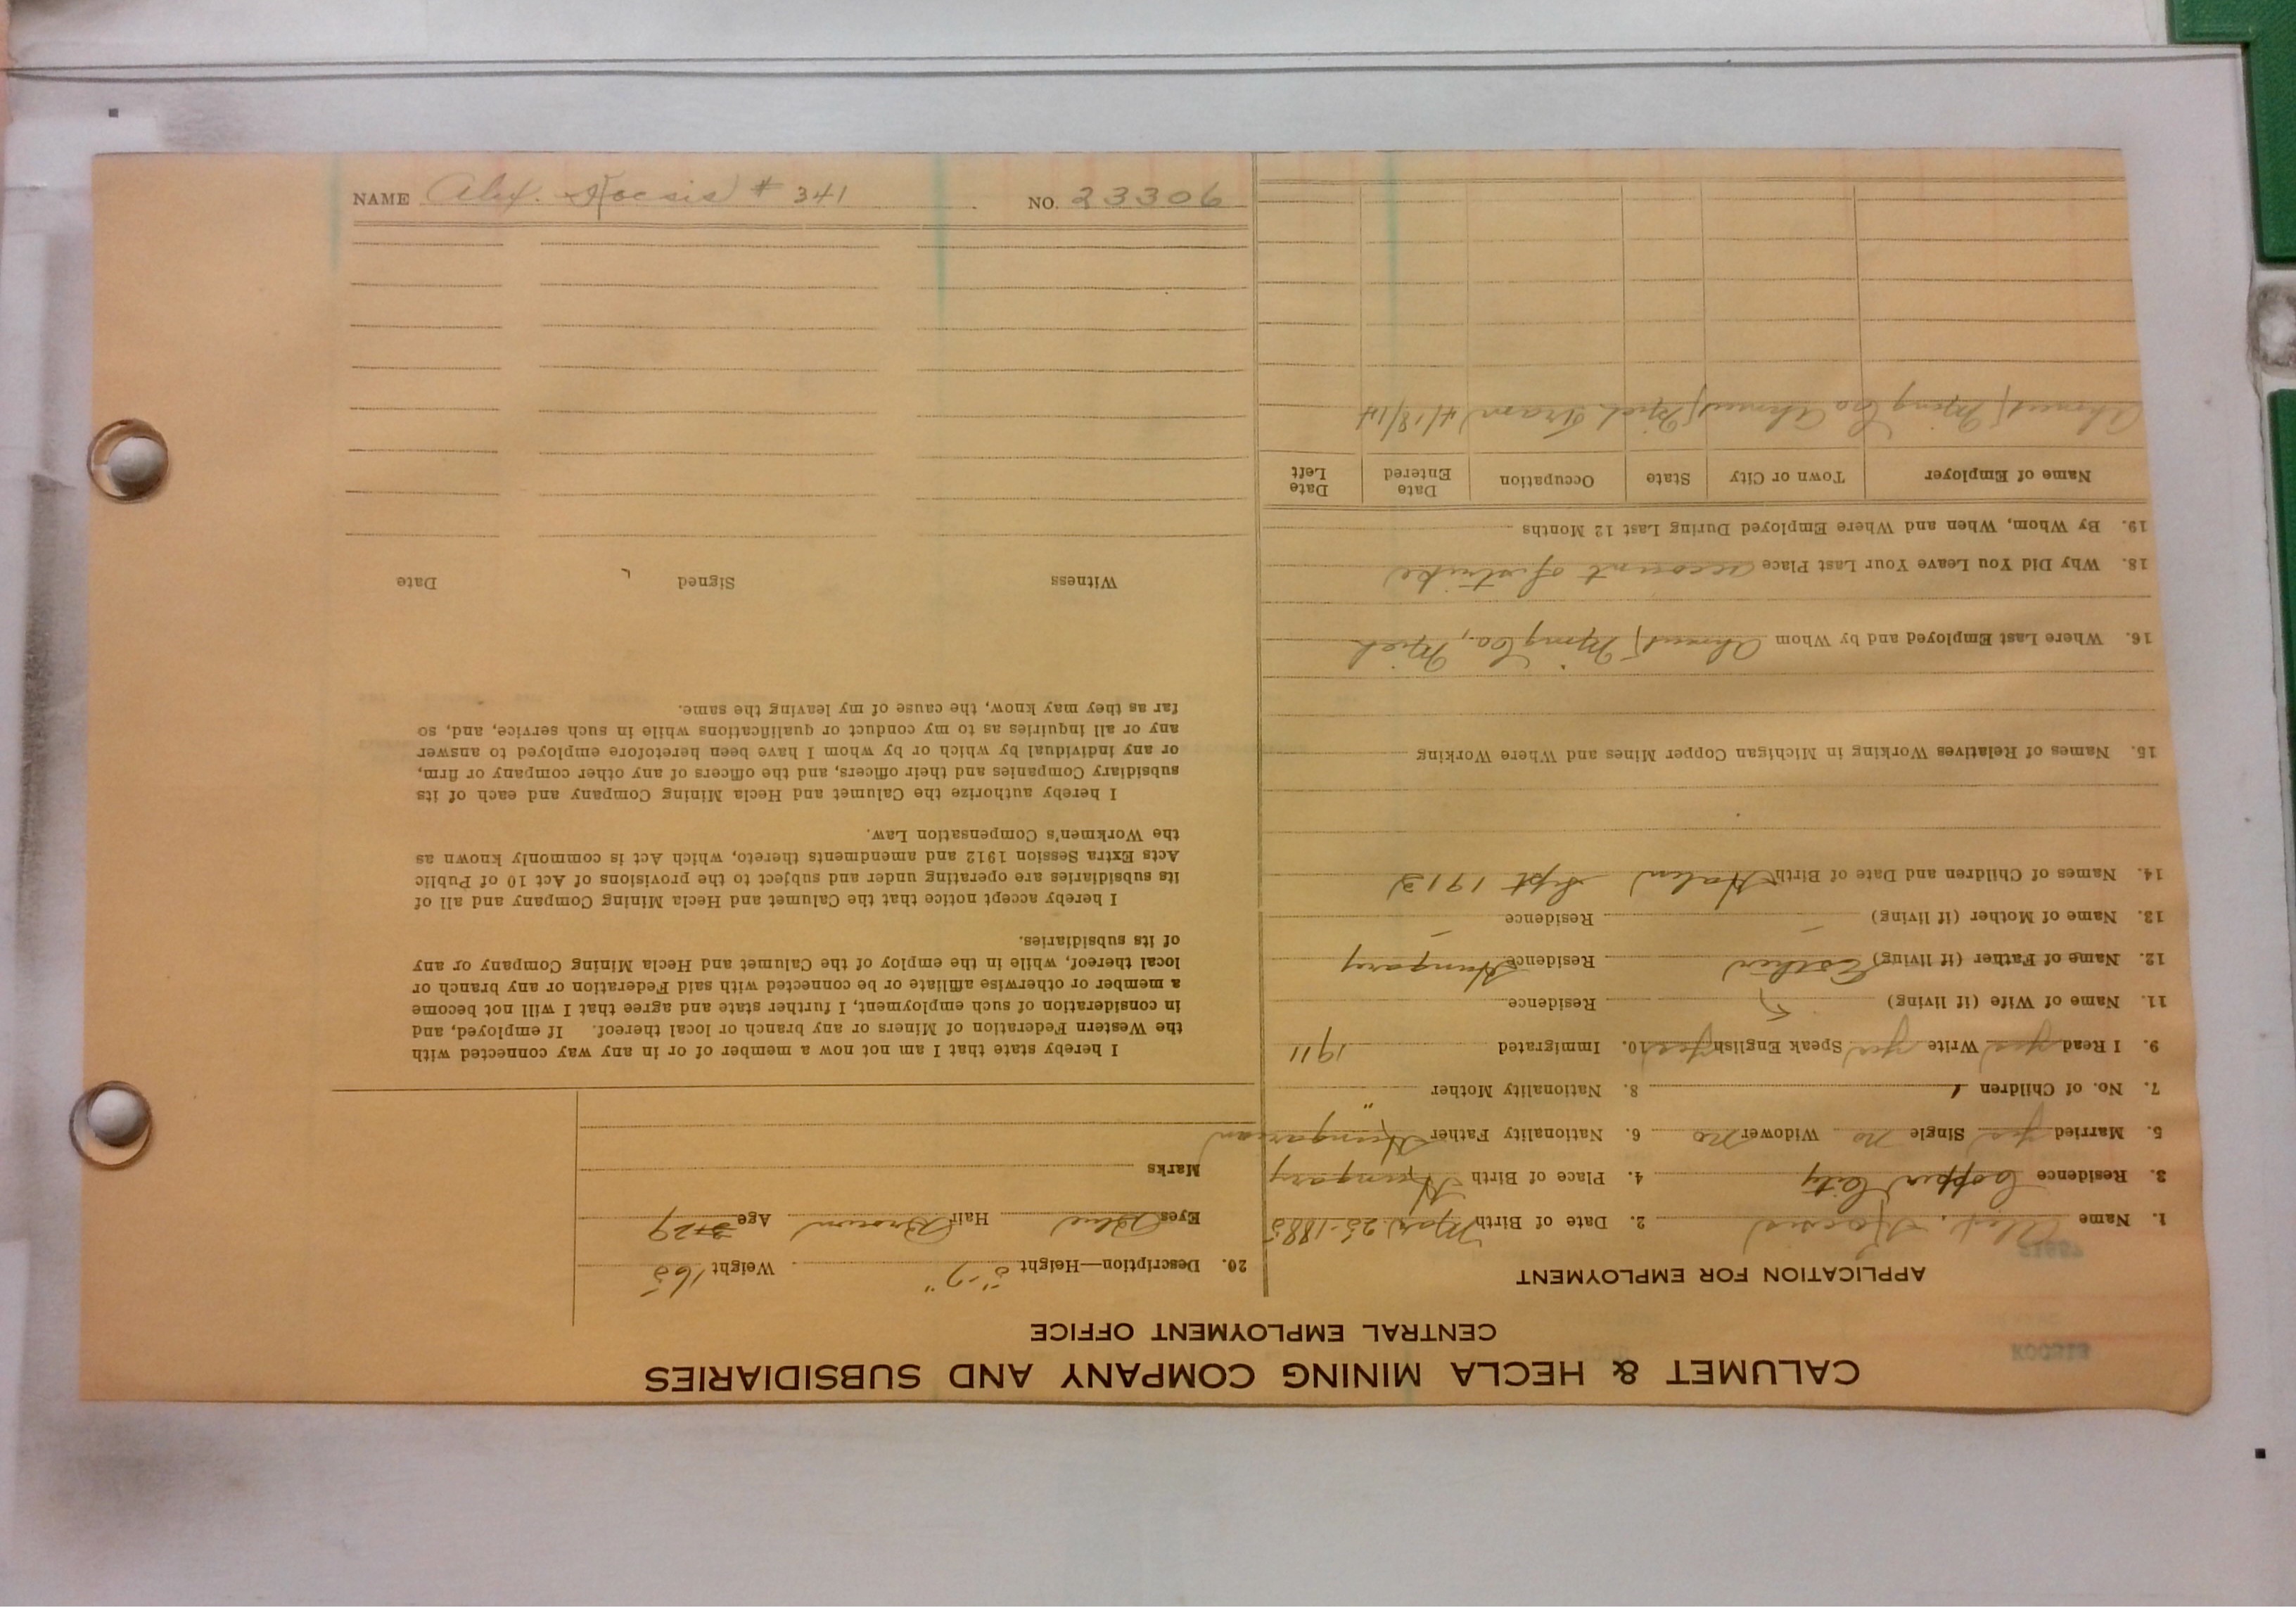 CALUMET & HECLA MINING COMPANY AND SUBSIDIARIES
CENTRAL EMPLOYMENT OFFICE
APPLICATION FOR EMPLOYMENT
1. Name Alex. Kocsis 2. Date of Birth Mar 25-1885
3. Residence Copper City 4. Place of Birth Hungary
5. Married yes Single no Widower no 6. Nationality Father Hungarian
7. No. of Children 1 8. Nationality Mother "
9. I Read yes Write yes Speak English yes 10. Immigrated 1911
11. Name of Wife (if living) Residence
12. Name of Father (if living) Esther Residence Hungary
13. Name of Mother (if living) – Residence –
14. Names of Children and Date of Birth Halen Sept 1913
15. Names of Relatives Working in Michigan Copper Mines and Where Working
16. Where Last Employed and by Whom Ahmeek Mining Co., Mich
18. Why Did You Leave Your Last Place account of strike
19. By Whom, When and Where Employed During Last 12 Months
Name of Employer Town or City State Occupation Date Entered Date Left
Ahmeek Mining Co Ahmeek Mich. Tram 4/18/14
20. Description—Height 5-7" Weight 165
Eyes Blue Hair Brown Age 29
Marks
I hereby state that I am not now a member of or in any way connected with
the Western Federation of Miners or any branch or local thereof. If employed, and
in consideration of such employment, I further state and agree that I will not become
a member or otherwise affiliate or be connected with said Federation or any branch or
local thereof, while in the employ of the Calumet and Hecla Mining Company or any
of its subsidiaries.
I hereby accept notice that the Calumet and Hecla Mining Company and all of
its subsidiaries are operating under and subject to the provisions of Act 10 of Public
Acts Extra Session 1912 and amendments thereto, which Act is commonly known as
the Workmen's Compensation Law.
I hereby authorize the Calumet and Hecla Mining Company and each of its
subsidiary Companies and their officers, and the officers of any other company or firm,
or any individual by which or by whom I have been heretofore employed to answer
any or all inquiries as to my conduct or qualifications while in such service, and, so
far as they may know, the cause of my leaving the same.
Witness Signed Date
NAME Alex. Kocsis # 341 NO. 23306